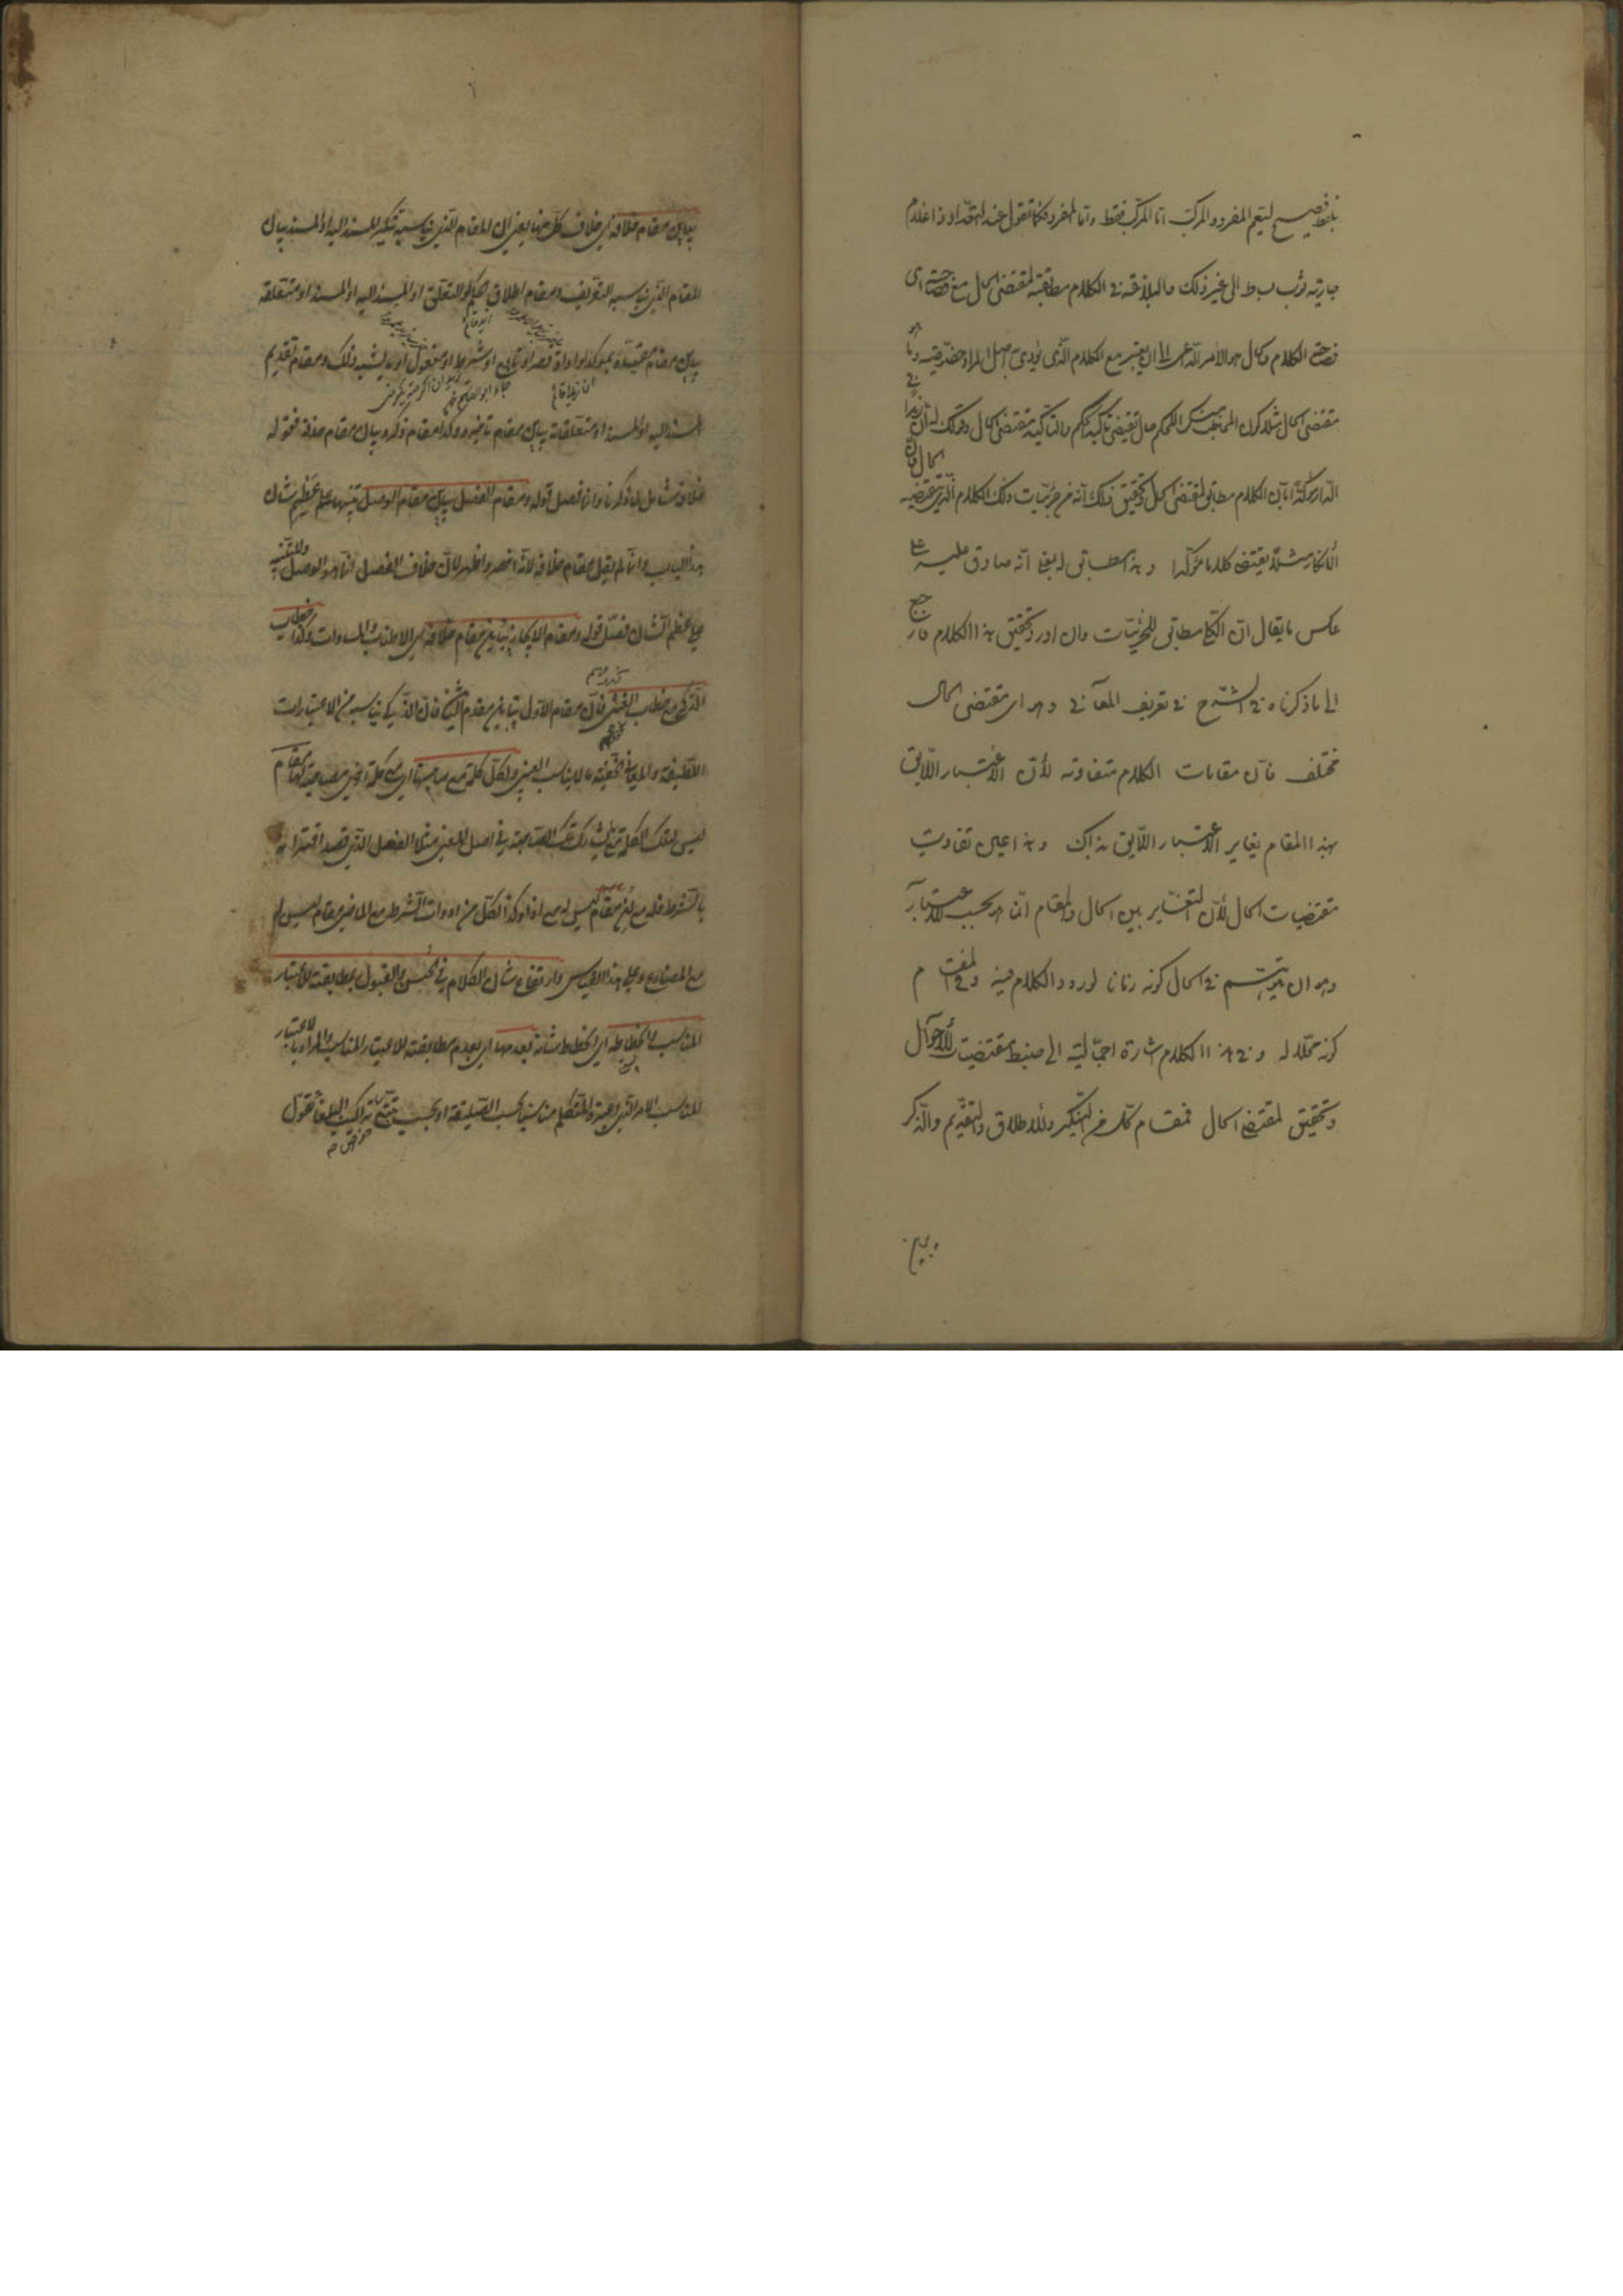 بلفظ فصيح ليعم المفرد والمركب اما المركب فقط واما المفرد فكما تقول عند التعداد دار غلام
جارية ثوب بساط الى غير ذلك والبلاغة فى الكلام مطابقته لمقتضى الحال مع فصاحته اى
فصاحة الكلام والحال هو الامر الداعى الى ان يعتبر مع الكلام الذى يؤدى به اصل المراد خصوصية ما وهو
مقتضى الحال مثلا كون المخاطب منكرا للحكم حال تقتضى تاكيد الحكم والتاكيد مقتضى الحال وقولك له ان زيدا فى
الدار مؤكدا بان الكلام مطابق لمقتضى الحال وتحقيق ذلك انه من جزئيات ذلك الكلام الذى يقتضيه الحال فان
الانكار مثلا يقتضى كلاما مؤكدا وهذا مطابق له بمعنى انه صادق عليه على
عكس ما يقال ان الكلى مطابق للجزئيات وان اردت تحقيق هذا الكلام فارجع
الى ما ذكرناه فى الشرح فى تعريف المعانى وهو اى مقتضى الحال
مختلف فان مقامات الكلام متفاوتة لان الاعتبار اللايق
بهذا المقام يغاير الاعتبار اللايق بذاك وهذا عين تفاوت
مقتضيات الحال لان التغاير بين الحال والمقام انما هو بحسب الاعتبار
وهو ان يتوهم فى الحال كونه زمانا لورود الكلام فيه وفى المقام
كونه محلا له وفى هذا الكلام اشارة اجمالية الى ضبط مقتضيات الاحوال
وتحقيق لمقتضى الحال فمقام كل من التنكير والاطلاق والتقديم والذكر
يباين
يباين مقام خلافه اى خلاف كل منها يعنى ان المقام الذى يناسبه تنكير المسند اليه او المسند يباين
المقام الذى يناسبه التعريف ومقام اطلاق الحكم او التعلق او المسند اليه او المسند او متعلقه
يباين مقام تقييده بمؤكد او اداة قصر او تابع او شرط او مفعول او ما يشبه ذلك ومقام تقديم
المسند اليه او المسند او متعلقاته يباين مقام تاخيره وكذا مقام ذكره يباين مقام حذفه فقوله
خلافه شامل لما ذكرنا وانما فصل قوله ومقام الفصل يباين مقام الوصل تنبيها على عظم شان
هذا الباب وانما لم يقل مقام خلافه لانه اخصر واظهر لان خلاف الفصل انما هو الوصل وللتنبيه
على عظم الشان فصل قوله ومقام الايجاز يباين مقام خلافه اى الاطناب والمساوات وكذا خطاب
الذكى مع خطاب الغبى فان مقام الاول يباين مقام الثانى فان الذكى يناسبه من الاعتبارات
اللطيفة والمعانى الخفية ما لا يناسب الغبى ولكل كلمة مع صاحبتها اى مع كلمة اخرى مصاحبة لها مقام
ليس لتلك الكلمة مع ما يشارك تلك المصاحبة فى اصل المعنى مثلا الفعل الذى قصد اقترانه
بالشرط فله مع ان مقام ليس له مع اذا وكذا لكل من ادوات الشرط مع الماضى مقام ليس له
مع المضارع وعلى هذا القياس وارتفاع شان الكلام فى الحسن والقبول بمطابقته للاعتبار
المناسب وانحطاطه اى انحطاط شانه بعدمها اى بعدم مطابقته للاعتبار المناسب والمراد بالاعتبار
المناسب الامر الذى اعتبره المتكلم مناسبا بحسب السليقة او بحسب تتبع تراكيب البلغاء تقول